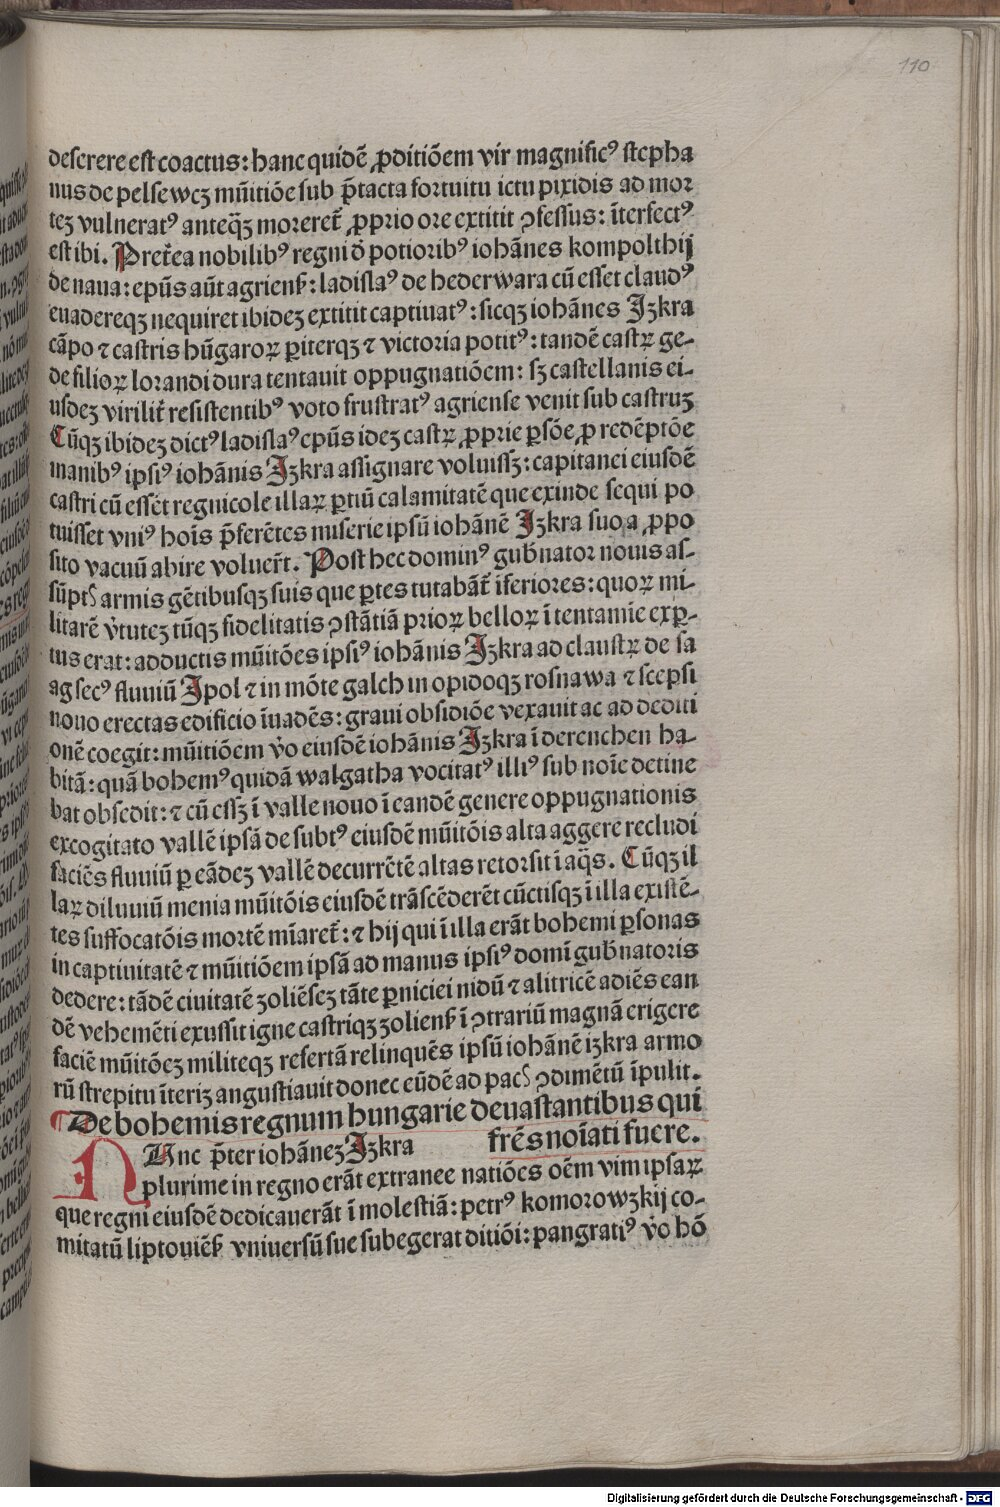 110
deserere est coactus: hanc quidē ꝓditiōem vir magnificꝰ stepha
nus de pelsewcz mūitiōe sub p̄tacta fortuitu ictu pixidis ad mor
teꝫ vulneratꝰ anteq̄ꝫ moreret᷑ ꝓprio ore extitit ꝯfessus: īterfectꝰ
est ibi. Pret᷑ea nobilibꝰ regni ꝺ̄ potioribꝰ iohānes kompolthij
de nana: epūs aūt agrienß: ladislaꝰ de hederwara cū esset claudꝰ
euadereqꝫ nequiret ibideꝫ extitit captiuatꝰ: sicqꝫ iohānes Jzkra
cāpo ⁊ castris hūgaroꝝ ꝑiterqꝫ ⁊ victoria potitꝰ: tandē castꝝ ge-
de filioꝝ lorandi dura tentauit oppugnatiōem: sꝫ castellanis ei-
usdeꝫ virilit᷑ resistentibꝰ voto frustratꝰ agriense venit sub castruꝫ
Cūqꝫ ibideꝫ dictꝰ ladislaꝰ epūs ideꝫ castꝝ ꝓprie ꝑsōe ꝓ redēptōe
manibꝰ ipsiꝰ iohānis Jzkra assignare voluissꝫ: capitanei eiusdē
castri cū essēt regnicole illaꝝ ꝑtiū calamitatē que exinde sequi po
tuisset vniꝰ hoīs p̄ferētes miserie ipsū iohānē Jzkra suo a ꝓpo
sito vacuū abire voluer̄t. Post hec dominꝰ gub̄nator nouis as-
sūptꝭ armis gētibusqꝫ suis que ꝑtes tutabāt᷑ īferiores: quoꝝ mi-
litarē v̓tuteꝫ tūqꝫ fidelitatis ꝯstātiā prioꝝ belloꝝ ī tentamīe exꝑ-
tus erat: adductis mūitōes ipsiꝰ iohānis Jzkra ad claustꝝ de sa
ag secꝰ fluuiū Jpol ⁊ in mōte galch in opidoqꝫ rosnawa ⁊ scepsi
nouo erectas edificio īuadēs: graui obsidiōe vexauit ac ad dediti
onē coegit: mūitiōem v̓o eiusdē iohānis Jzkra ī derenchen ha-
bitā: quā bohemꝰ quidā walgatha vocitatꝰ illiꝰ sub noīe detine
bat obsedit: ⁊ cū essꝫ ī valle nouo ī eandē genere oppugnationis
excogitato vallē ipsā de subtꝰ eiusdē mūitōis alta aggere recludi
faciēs fluuiū ꝑ eādeꝫ vallē decurrētē altas retorsit ī aq̄s. Cūqꝫ il
laꝝ diluuiū menia mūitōis eiusdē trāscēderēt cūctisqꝫ ī illa existē-
tes suffocatōis mortē mīaret᷑: ⁊ hij qui ī illa erāt bohemi ꝑsonas
in captiuitatē ⁊ mūitiōem ipsā ad manus ipsiꝰ domī gub̄natoris
dedere: tādē ciuitatē zoliēseꝫ tāte ꝑniciei nidū ⁊ alitricē adiēs ean
dē vehemēti exussit igne castriqꝫ zolienß ī ꝯtrariū magnā erigere
faciē mūitōeꝫ militeqꝫ refertā relinquēs ipsū iohānē izkra armo
rū strepitu īteriꝫ angustiauit donec eūdē ad pacꝭ ꝯdimētū īpulit.
De bohemis regnum hungarie deuastantibus qui
frēs noīati fuere.
NUnc p̄ter iohāneꝫ Jzkra
plurime in regno erāt extranee natiōes oēm vim ipsaꝝ
que regni eiusdē dedicauerāt ī molestiā: petrꝰ komorowzkij co-
mitatū liptouiēß vniuersū sue subegerat ditiōi: pangratiꝰ v̓o hō
Digitalisierung gefördert durch die Deutsche Forschungsgemeinschaft - DFG